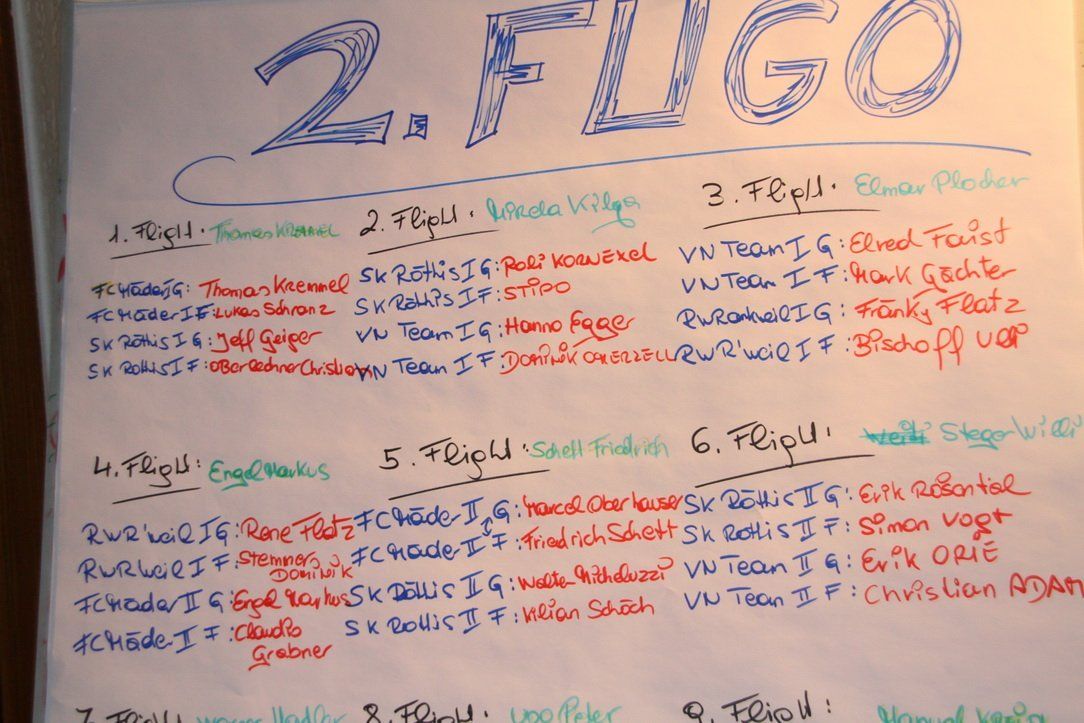 2. FUGO
1. Flight: Thomas Kremmel
FC Mäder I G: Thomas Kremmel
FC Mäder I F: Lukas Schranz
SK Röthis I G: Jeff Geiger
SK Röthis I F: Oberlechner Christian
2. Flight: Kilga
SK Röthis I G: Poli KORNEXEL
SK Röthis I F: STIPO
VN Team I G: Hanno Egger
VN Team I F: DOMINIK
3. Flight: Elmar Plocher
VN Team I G: Elred Faist
VN Team I F: Mark Gächter
RW Rankweil I G: Fränky Flatz
RW R'weil I F: Bischoff
4. Flight: Engel Markus
RW R'weil I G: Rene Flatz
RW R'weil I F: Stemmer
DOMINIK
FC Mäder II G: Engel Markus
FC Mäder II F: Claudio
Grabner
5. Flight: Schett Friedrich
FC Mäder II G: Marcel Oberhauser
FC Mäder II F: Friedrich Schett
SK Röthis II G: Walter Micheluzzi
SK Röthis II F: Kilian Schöch
6. Flight: Steger Willi
SK Röthis II G: Erik Rosental
SK Röthis II F: Simon Vogt
VN Team II G: Erik ORIÉ
VN Team II F: Christian ADAM
7. Flight
8. Flight: Peter
9. Flight: Manuel